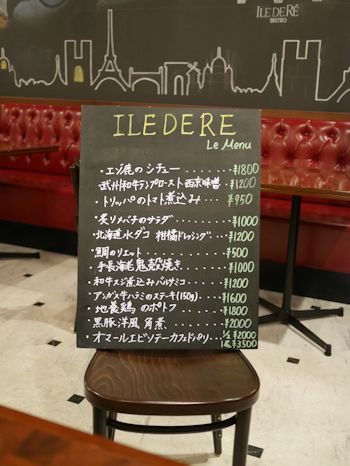 ILE DE RÉ
BISTRO
ILE DE RE
Le Menu
・エゾ鹿のシチュー・・・・・・・¥1800
・武州和牛ランプロースト西京味噌 ¥1200
・トリッパのトマト煮込み・・・・ ¥950
・炙りメバチのサラダ・・・・・・・¥1000
・北海道水ダコ 柑橘ドレッシング・¥1200
・鯛のリエット・・・・・・・・¥500
・手長海老鬼殻焼き・・・・・¥1000
・和牛スジ煮込みバルサミコ・・・¥1200
・アンガス牛ハラミのステーキ(150g)・¥1600
・地養鶏 のポトフ・・・・・・¥1800
・黒豚洋風 角煮・・・・・・¥2000
・オマールエビソテーカフェドパリ・½ ¥2000
1尾 ¥3500